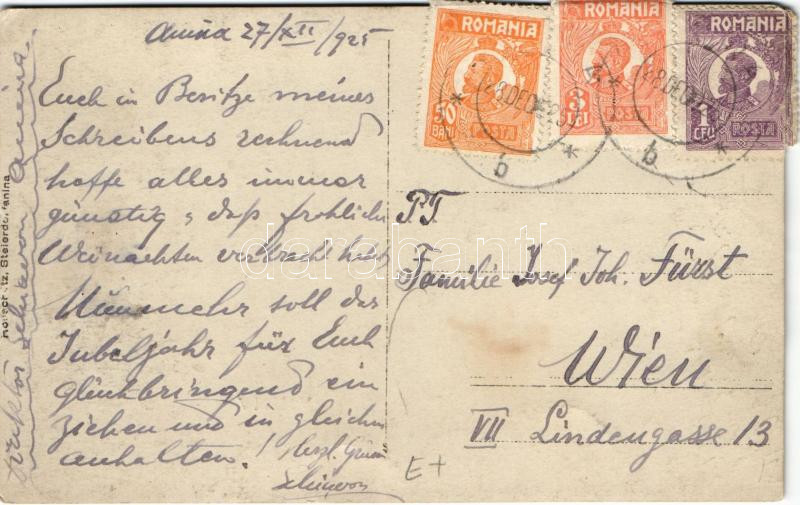 Anina 27/XII/925
Euch in Besitze meines
Schreibens rechnend
hoffe alles immer
günstig, daß fröhliche
Weinachten verbracht habt
Nunmehr soll das
Jubeljahr für Euch
glückbringend ein
ziehen und in gleichen
anhalten!
P.T.
Familie Josef Joh. Fürst
Wien
VII Lindengasse 13
E+
ROMANIA
50 BANI
POSTA
ROMANIA
3 LEI
POSTA
ROMANIA
1 LEU
POSTA
b
b
darabanth